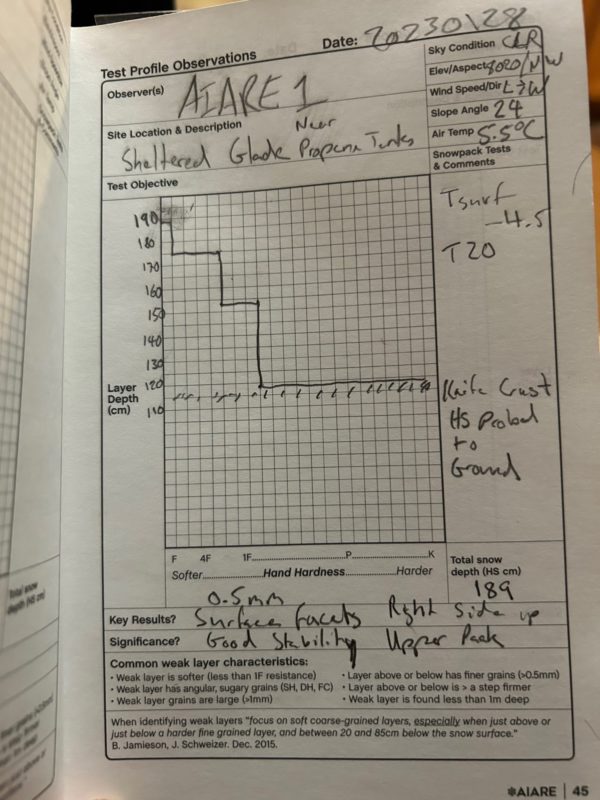 Date: 20230128
Test Profile Observations
Sky Condition CLR
Observer(s) AIARE 1
Elev/Aspect NW
Wind Speed/Dir L W
Slope Angle 24
Site Location & Description
Near
Air Temp 5.5°C
Sheltered Glade Propane Tanks
Snowpack Tests
& Comments
Test Objective
Tsurf
-4.5
T20
190
180
170
160
150
140
130
120
110
Layer
Depth
(cm)
Knife Crust
HS Probed
to
Ground
F 4F 1F P K
Softer Hand Hardness Harder
Total snow
depth (HS cm)
189
0.5mm
Key Results? Surface Facets Right Side up
Significance? Good Stability Upper Pack
Common weak layer characteristics:
• Weak layer is softer (less than 1F resistance)
• Weak layer has angular, sugary grains (SH, DH, FC)
• Weak layer grains are large (>1mm)
• Layer above or below has finer grains (>0.5mm)
• Layer above or below is > a step firmer
• Weak layer is found less than 1m deep
When identifying weak layers "focus on soft coarse-grained layers, especially when just above or
just below a harder fine grained layer, and between 20 and 85cm below the snow surface."
B. Jamieson, J. Schweizer. Dec. 2015.
AIARE | 45
Total snow
depth (HS cm)